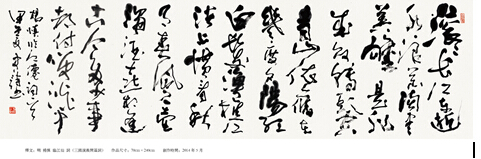 滚滚长江东逝
水浪花淘尽
英雄是非
成败转头空
青山依旧在
几度夕阳红
白发渔樵江
渚上惯看秋
月春风一壶
浊酒喜相逢
古今多少事
都付笑谈中
杨慎临江仙词一首
甲午
释文：明 杨慎 临江仙 词 作品尺寸：70cm×240cm 创作时间：2014年5月